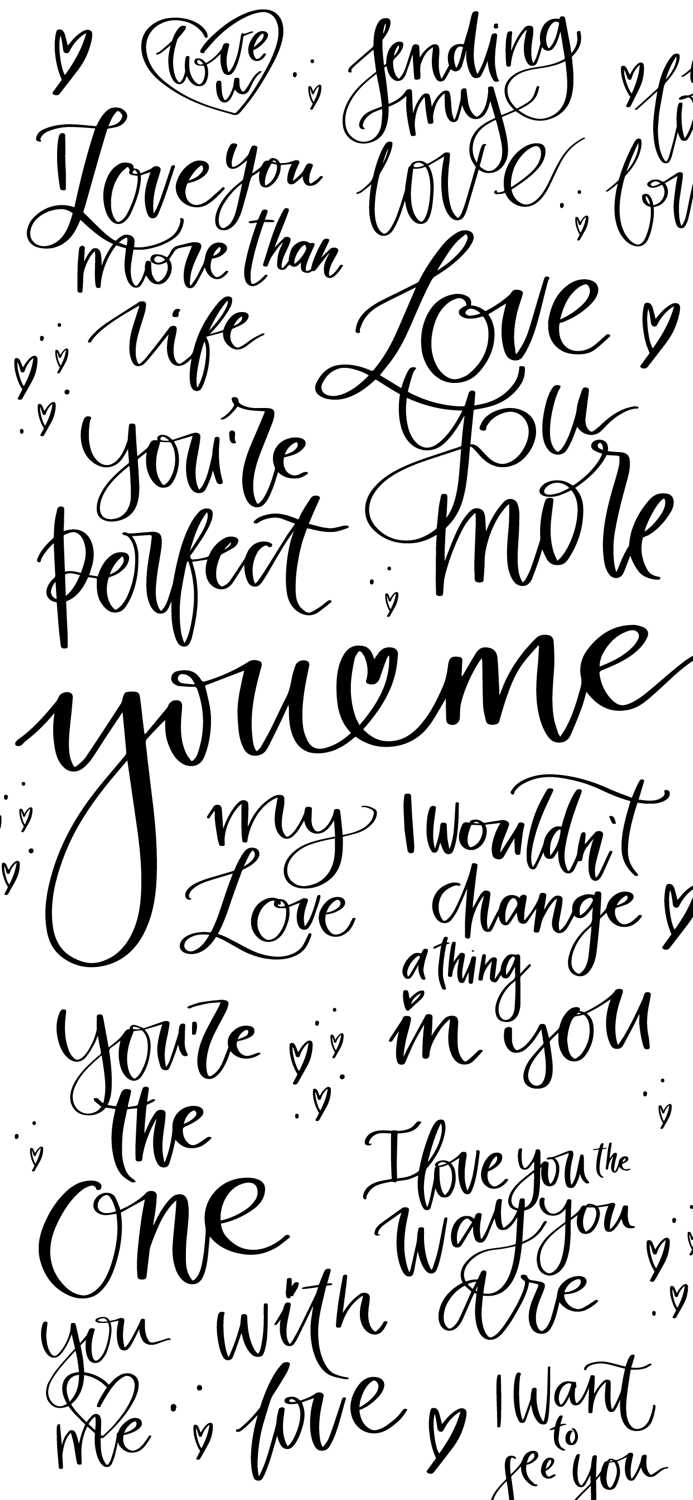 love
u
sending
my
love
I love you
more than
life
Love
you
more
you're
perfect
you me
my
Love
I wouldn't
change
a thing
in you
you're
the
one
I love you the
way you
are
you
me
with
love
I want
to
see you